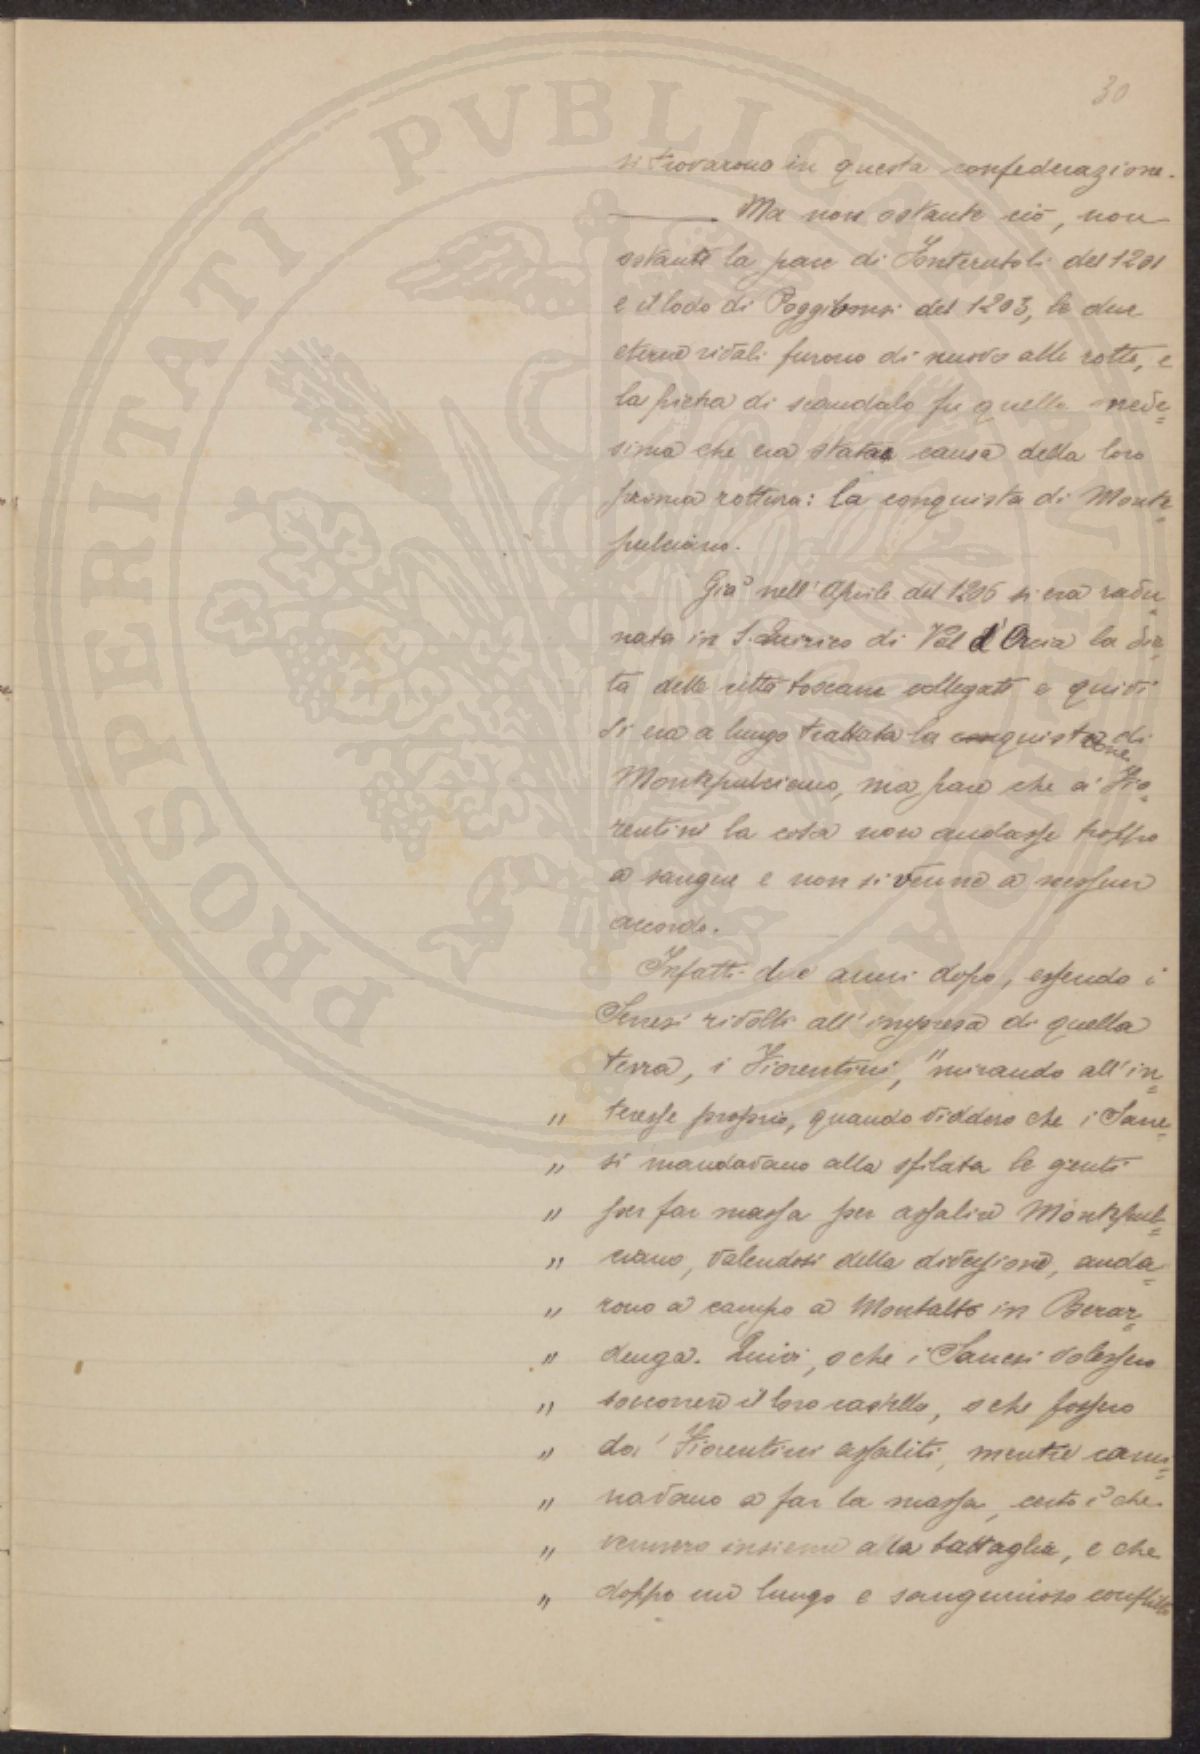 30
si trovarono in questa confederazione.
Ma non ostante ciò, non
ostante la pace di Fonterutoli del 1201
e il lodo di Poggibonsi del 1203, le due
eterne rivali furono di nuovo alle rotte, e
la pietra di scandalo fu quella mede=
sima che era stata causa della loro
prima rottura: la conquista di Monte=
pulciano.
Già nell'Aprile del 1205 si era radu=
nata in S. Quirico di Val d'Orcia la die=
ta delle città toscane collegate e quivi
si era a lungo trattata la questione di
Montepulciano, ma pare che a' Fio=
rentini la cosa non andasse troppo
a sangue e non si venne a nessun
accordo.
Infatti due anni dopo, essendo i
Senesi rivolti all'impresa di quella
terra, i Fiorentini, "mirando all'in=
" teresse proprio, quando viddero che i Sane=
" si mandavano alla sfilata le genti
" per far massa per assalire Montepul=
" ciano, valendosi della diversione, anda=
" rono a campo a Montalto in Berar=
" denga. Quivi, o che i Sanesi volessero
" soccorrere il loro castello, o che fossero
" da' Fiorentini assaliti, mentre cami=
" navano a far la massa, certo è che
" vennero insieme alla battaglia, e che
" doppo un lungo e sanguinoso conflitto
PROSPERITATI PVBLICAE AVGENDAE